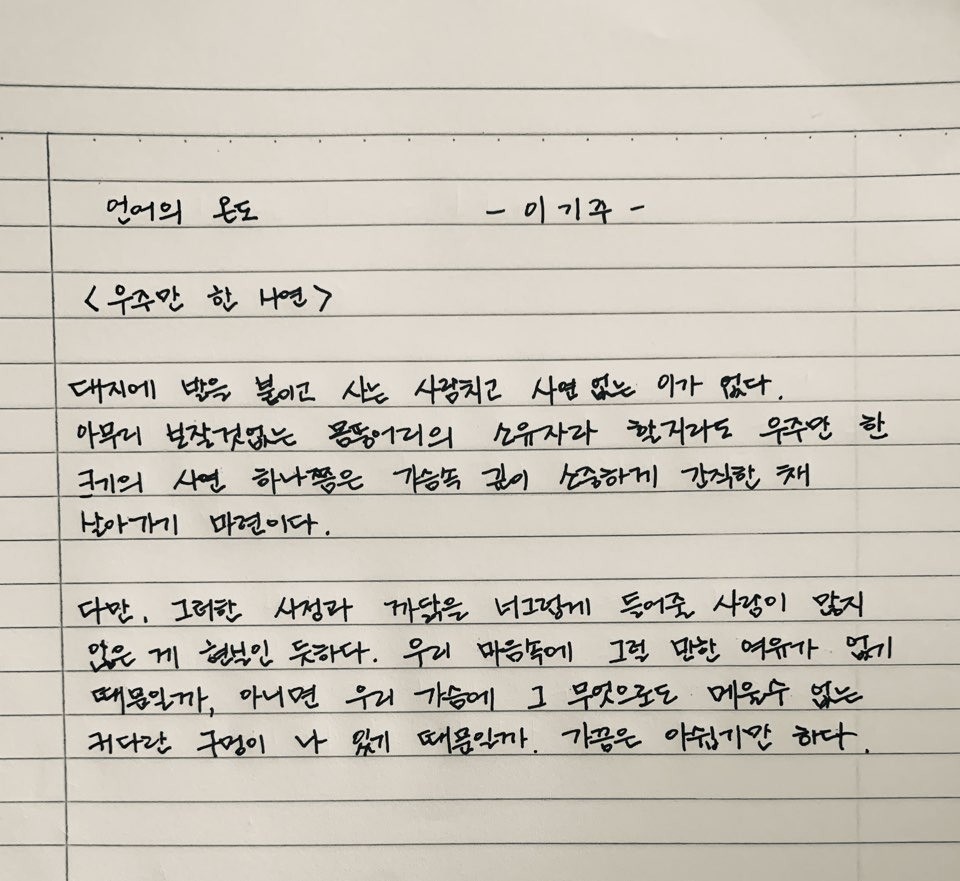 언어의 온도 - 이기주 -
<우주만 한 사연>
대지에 발을 붙이고 사는 사람치고 사연 없는 이가 없다.
아무리 보잘것없는 몸뚱어리의 소유자라 할지라도 우주만 한
크기의 사연 하나쯤은 가슴속 깊이 소중하게 간직한 채
살아가기 마련이다.
다만, 그러한 사정과 까닭을 너그럽게 들어줄 사람이 많지
않은 게 현실인 듯하다. 우리 마음속에 그럴 만한 여유가 없기
때문일까, 아니면 우리 가슴에 그 무엇으로도 메울수 없는
커다란 구멍이 나 있기 때문일까. 가끔은 아쉽기만 하다.